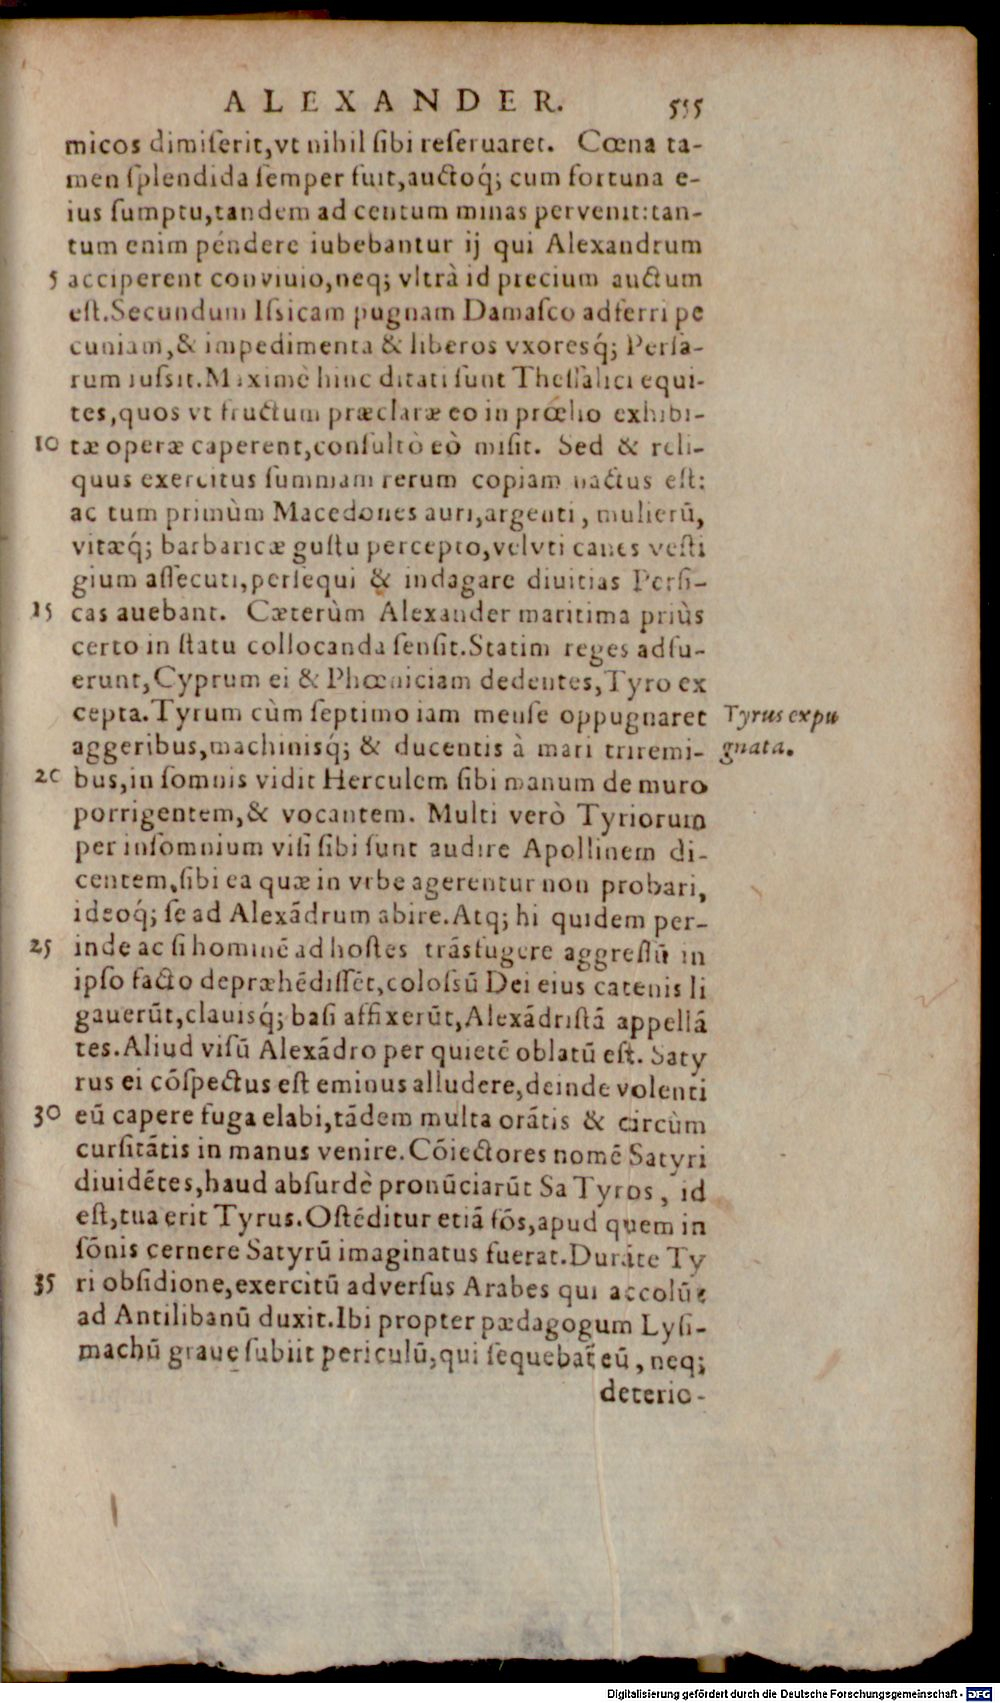 ALEXANDER. 555
micos dimiſerit,vt nihil ſibi reſeruaret. Cœna ta-
men ſplendida ſemper fuit,auctoq́; cum fortuna e-
ius ſumptu,tandem ad centum minas pervenit:tan-
tum enim péndere iubebantur ij qui Alexandrum
5 acciperent conviuio,neq; vltrà id precium auctum
eſt.Secundum Iſsicam pugnam Damaſco adferri pe
cuniam,& impedimenta & liberos vxoresq́; Perſa-
rum iuſsit.Maximè hinc ditati ſunt Theſſalici equi-
tes,quos vt fructum præclaræ eo in prœlio exhibi-
10 tæ operæ caperent,conſultò eò miſit. Sed & reli-
quus exercitus ſummam rerum copiam nactus eſt:
ac tum primùm Macedones auri,argenti, mulierū,
vitæq́; barbaricæ guſtu percepto,velvti canes veſti
gium aſſecuti,perſequi & indagare divitias Perſi-
15 cas auebant. Cæterùm Alexander maritima priùs
certo in ſtatu collocanda ſenſit.Statim reges adfu-
erunt,Cyprum ei & Phœniciam dedentes,Tyro ex
cepta.Tyrum cùm ſeptimo iam menſe oppugnaret Tyrus expu
aggeribus,machinisq́; & ducentis à mari triremi- gnata.
20 bus,in ſomnis vidit Herculem ſibi manum de muro
porrigentem,& vocantem. Multi verò Tyriorum
per inſomnium viſi ſibi ſunt audire Apollinem di-
centem,ſibi ea quæ in vrbe agerentur non probari,
ideoq́; ſe ad Alexādrum abire.Atq; hi quidem per-
25 inde ac ſi hominē ad hoſtes trāsfugere aggreſſū in
ipſo facto depræhēdiſſēt,coloſſū Dei eius catenis li
gauerūt,clauisq́; baſi affixerūt,Alexādriſtā appellā
tes.Aliud viſū Alexādro per quietē oblatū eſt. Saty
rus ei cōſpectus eſt eminus alludere,deinde volenti
30 eū capere fuga elabi,tādem multa orātis & circùm
curſitātis in manus venire.Cōiectores nomē Satyri
diuidētes,haud abſurdè pronūciarūt Sa Tyros, id
eſt,tua erit Tyrus.Oſtēditur etiā fōs,apud quem in
ſōnis cernere Satyrū imaginatus fuerat.Durāte Ty
35 ri obſidione,exercitū adverſus Arabes qui accolūt
ad Antilibanū duxit.Ibi propter pædagogum Lyſi-
machū graue ſubiit periculū,qui ſequebat̄ eū, neq;
deterio-
Digitalisierung gefördert durch die Deutsche Forschungsgemeinschaft - DFG